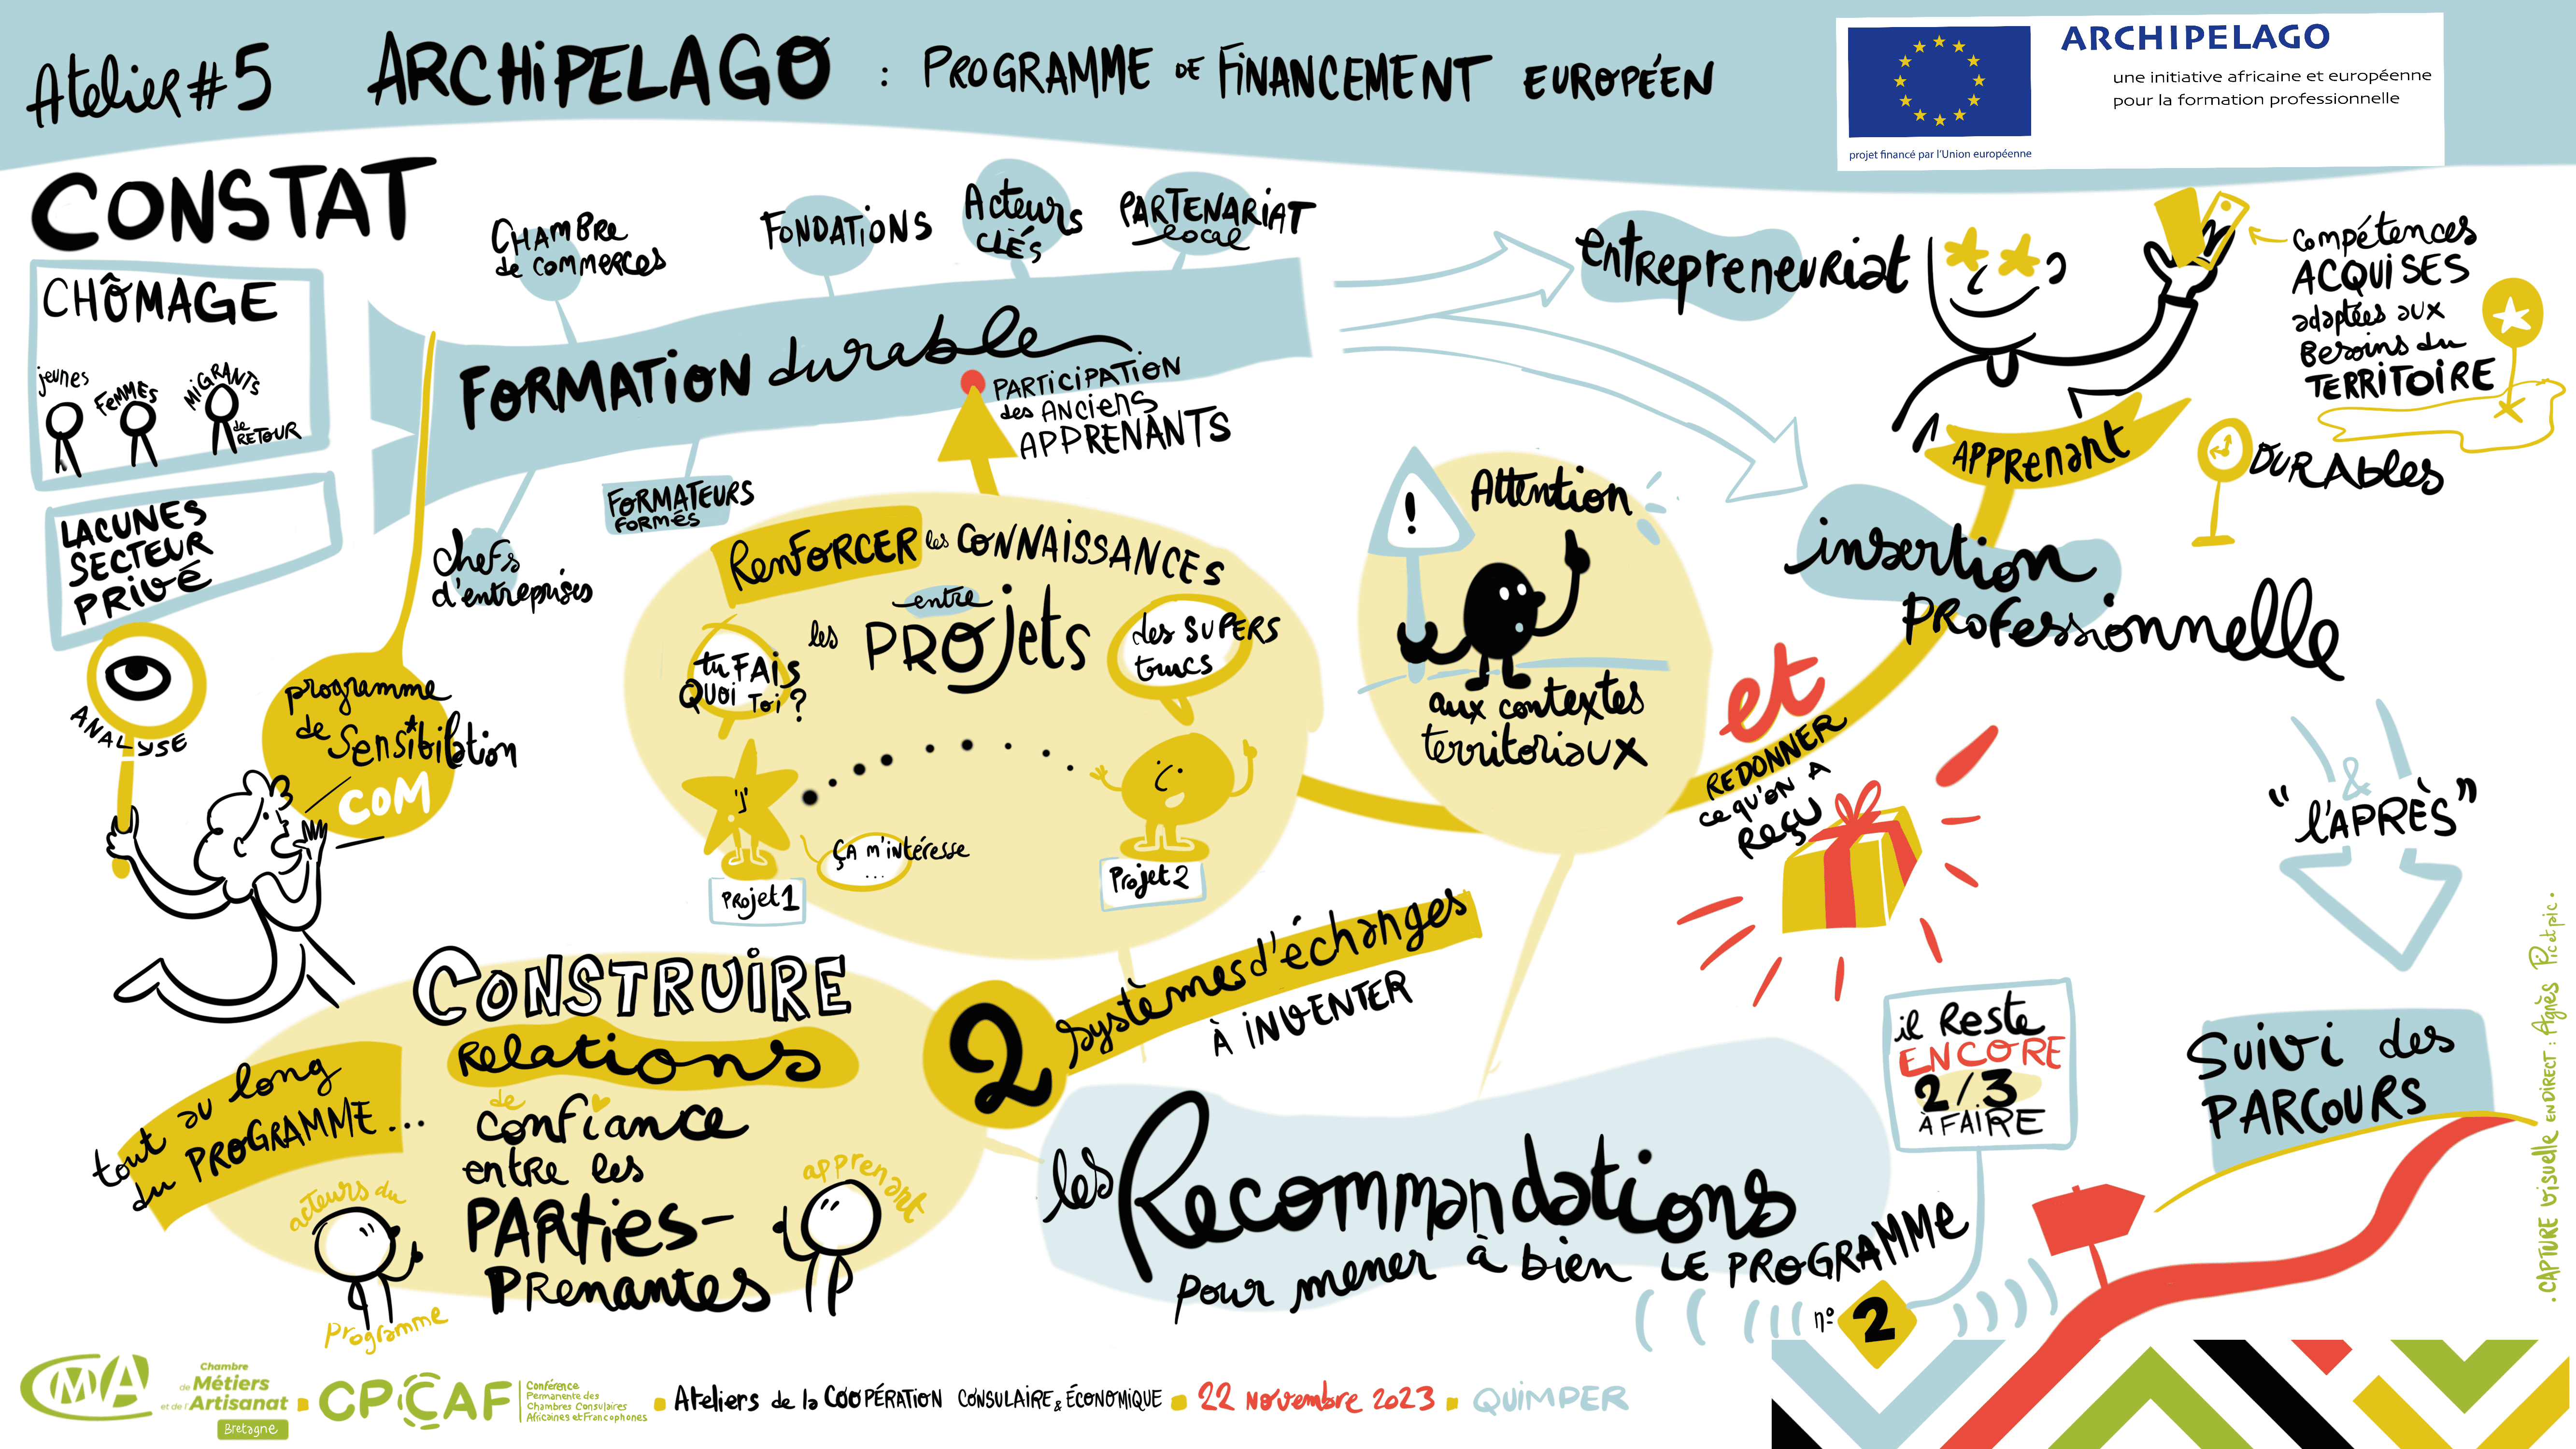 Atelier #5
ARCHIPELAGO : PROGRAMME DE FINANCEMENT EUROPÉEN
ARCHIPELAGO
une initiative africaine et européenne
pour la formation professionnelle
projet financé par l'Union européenne
CONSTAT
CHÔMAGE
jeunes
FEMMES
MIGRANTS
de
RETOUR
LACUNES
SECTEUR
PRIVÉ
ANALYSE
programme
de sensibilation
COM
CHAMBRE
de commerces
FONDATIONS
Acteurs
CLÉS
PARTENARIAT
local
FORMATION durable
PARTICIPATION
des ANCIENS
APPRENANTS
FORMATEURS
FORMÉS
chefs
d'entreprises
entrepreneuriat
compétences
ACQUISES
adaptées aux
Besoins du
TERRITOIRE
APPRENANT
DURABLES
insertion
PROfessionnelle
RENFORCER les CONNAISSANCES
entre
les PROJets
tu FAIS
QUOI Toi ?
des SUPERS
trucs
ÇA m'intéresse
...
PROJet 1
PROJet 2
!
Attention
aux contextes
territoriaux
et
REDONNER
ce qu'on A
REÇU
&
"l'APRÈS"
SUIVI des
PARCOURS
CONSTRUIRE
Relations
de
confiance
entre les
PARties-
PRENANTES
tout au long
du PROGRAMME...
acteurs du
Programme
apprenant
2 systèmes d'échanges
À INVENTER
les Recommandations
pour mener à bien LE PROGRAMME
n° 2
il Reste
ENCORE
2/3
À FAIRE
CMA
Chambre
de Métiers
et de l'Artisanat
Bretagne
CPCCAF
Conférence
Permanente des
Chambres Consulaires
Africaines et Francophones
Ateliers de la COOPÉRATION CONSULAIRE & ÉCONOMIQUE
22 novembre 2023
QUIMPER
. CAPTURE visuelle EN DIRECT : Agnès Pic et pic .